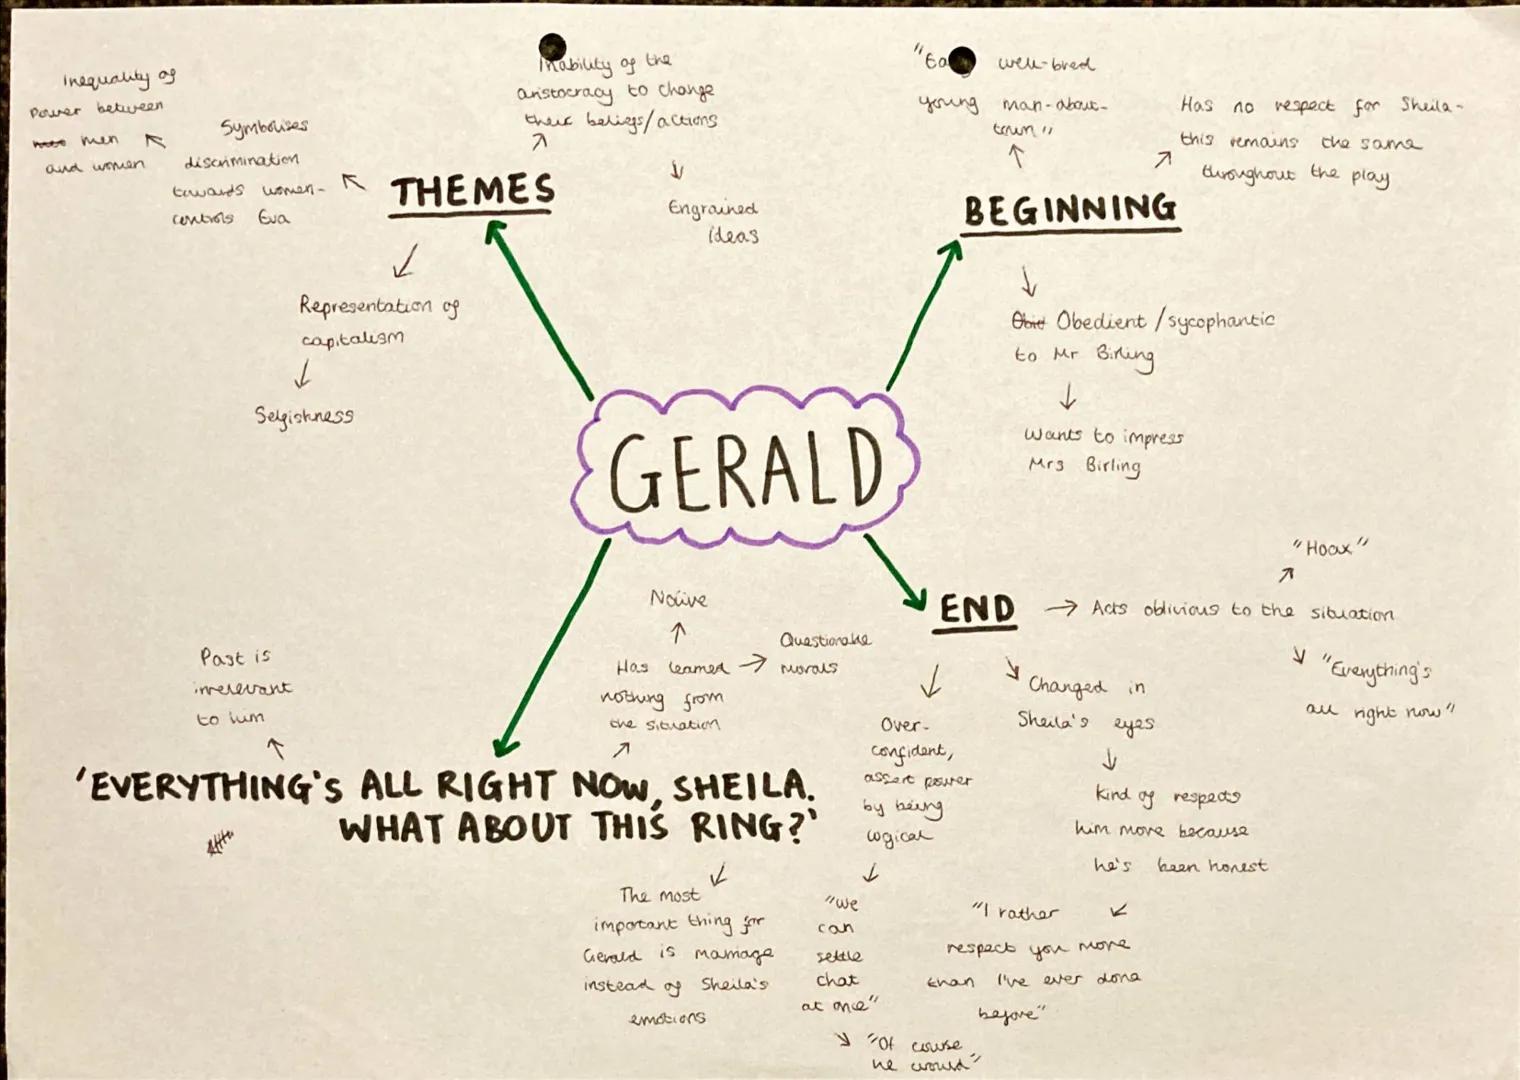 Inequality of
Power between
men
and women
Symbolises
discrimination
towards women-
controls Eva
THEMES
Inability of the
aristocracy to change
their beliefs/actions
Engrained
ideas
Representation of
capitalism
Selfishness
well-bred
young man-about-
town"
Has no respect for Sheila-
this remains the same
throughout the play
BEGINNING
Obedient/sycophantic
to Mr Birling
Wants to impress
Mrs Birling
GERALD
END
Acts oblivious to the situation
"Hoax"
"Everything's
all right now"
Changed in
Sheila's eyes
Kind of respects
him more because
he's been honest
"I rather
respect you more
than I've ever done
before"
Over-
confident,
assert power
by being
logical
"We
can
settle
that
at once"
"Of course
he would"
Naïve
Has learned
nothing from
the situation
Questionable
morals
Past is
irrelevant
to him
'EVERYTHING'S ALL RIGHT NOW, SHEILA.
WHAT ABOUT THIS RING?'
The most
important thing for
Gerald is marriage
instead of Sheila's
emotions